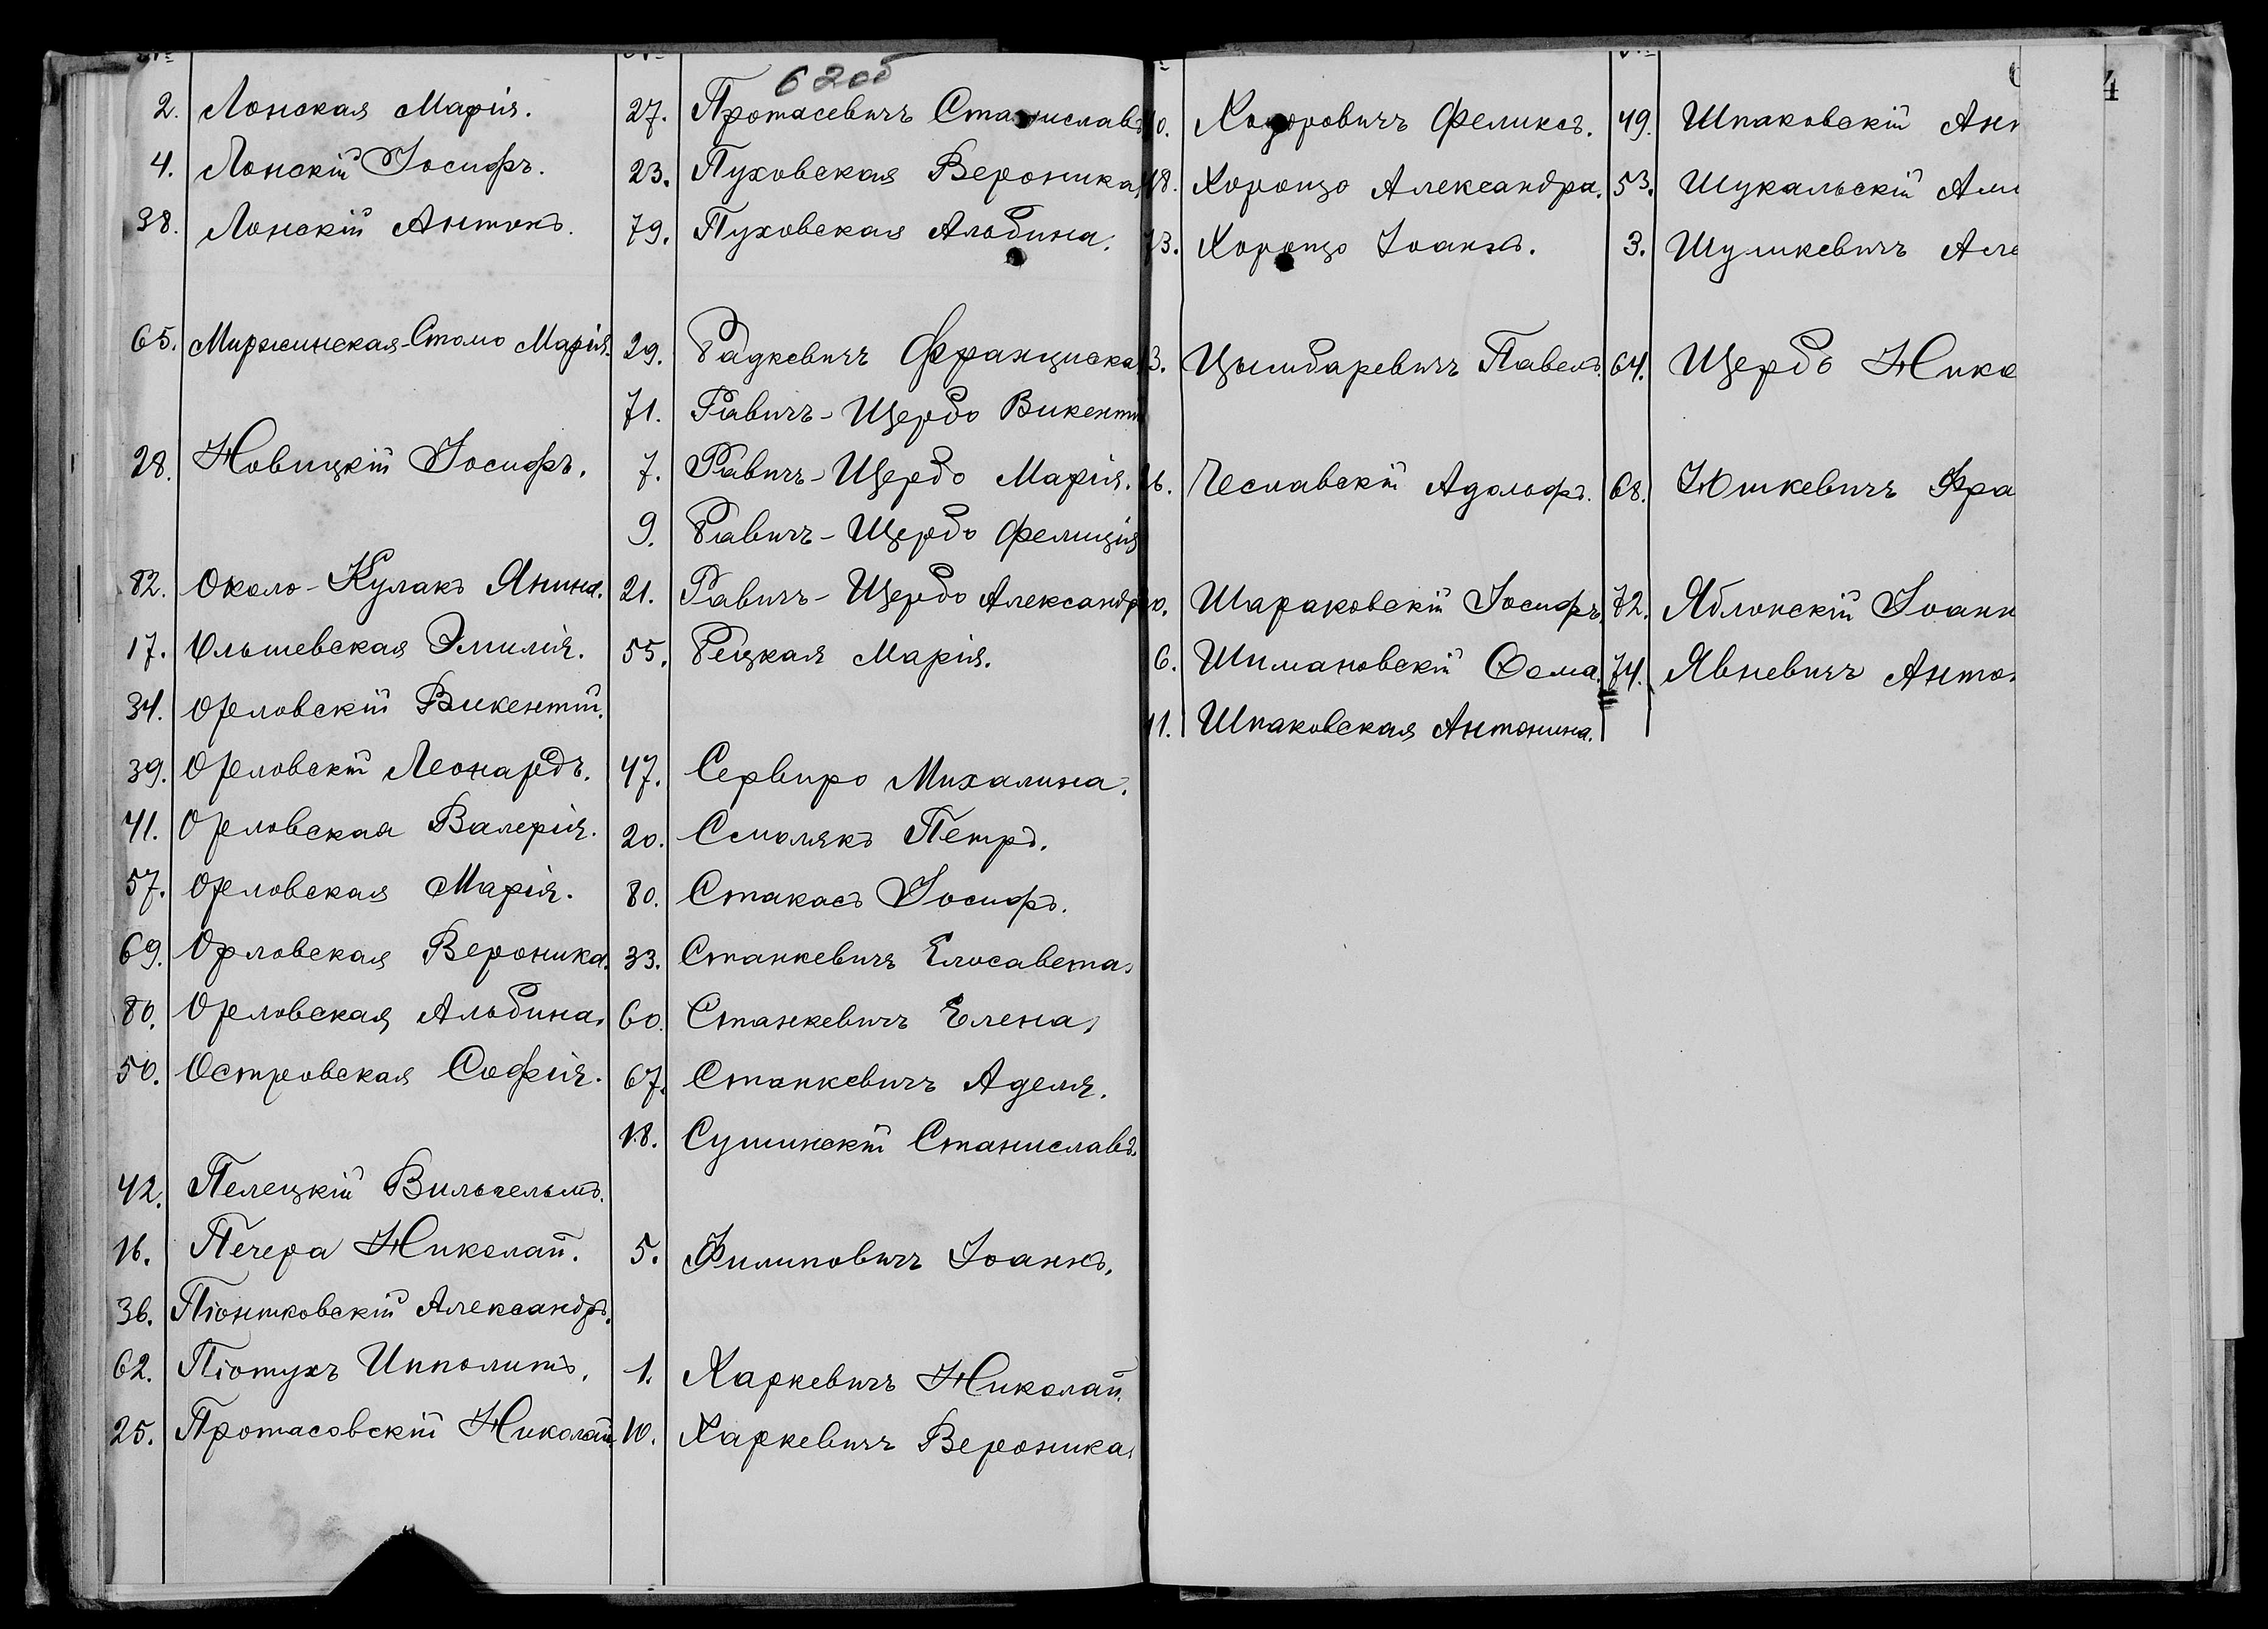 62об
2. Лонская Марія.
4. Лонскій Іосифъ.
38. Лонскій Антонъ.
65. Миржинская-Стомо Марія.
28. Новицкій Іосифъ.
82. Около-Кулакъ Янина.
17. Ольшевская Эмилія.
34. Орловскій Викентій.
39. Орловскій Леонардъ.
41. Орловская Валерія.
57. Орловская Марія.
69. Орловская Вероника.
80. Орловская Альбина.
50. Островская Софія.
42. Пелецкій Вильгельмъ.
16. Печера Николай.
36. Піонтковскій Александръ.
62. Піотухъ Ипполитъ.
25. Протасовскій Николай
27. Протасевичъ Станиславъ
23. Пуховская Вероника
79. Пуховская Альбина.
29. Радкевичъ Франциска
71. Равичъ-Щердо Викентій
7. Равичъ-Щердо Марія.
9. Равичъ-Щердо Фелиція
21. Равичъ-Щердо Александр
55. Рецкая Марія.
47. Сервиро Михалина.
20. Смолякъ Петръ.
80. Стакасъ Іосифъ.
33. Станкевичъ Елисавета.
60. Станкевичъ Елена.
67. Станкевичъ Аделя.
18. Сушинскій Станиславъ.
5. Филиповичъ Іоаннъ.
1. Харкевичъ Николай.
10. Харкевичъ Вероника.
4
0. Феликсъ.
18. Хоронцо Александра.
73. Хоронцо Іоаннъ.
3. Цымбаревичъ Павелъ.
16. Чеславскій Адольфъ.
0. Шараковскій Іосифъ.
6. Шимановскій Ѳома.
11. Шпаковская Антонина.
49. Шпаковскій Ант
53. Шукальскій Али
3. Шумкевичъ Але
64. Щердо Нико
68. Юшкевичъ Фра
72. Яблонскій Іоанн
74. Явневичъ Антон